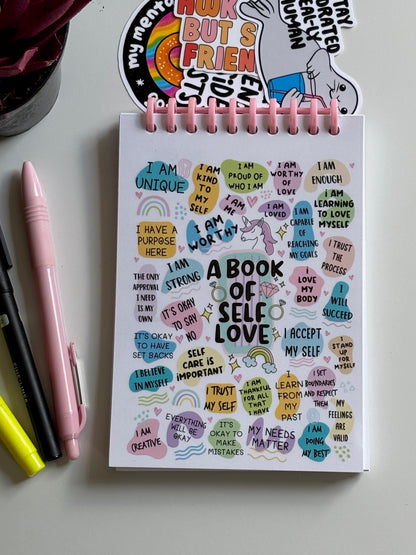 my ment
AWK
BUT S
FRIEN
STAY
HYDRATED
REAL-LY
HUMAN
I AM
UNIQUE
I AM
KIND
TO MY
SELF
I AM
PROUD OF
WHO I AM
I AM
WORTHY
OF
LOVE
I AM
ENOUGH
I AM
ME
I AM
LOVED
I AM
LEARNING
TO LOVE
MYSELF
I HAVE A
PURPOSE
HERE
I AM
WORTHY
I AM
CAPABLE
OF
REACHING
MY GOALS
I TRUST
THE
PROCESS
THE ONLY
APPROVAL
I NEED
IS MY
OWN
I AM
STRONG
A BOOK
OF
SELF
LOVE
I
LOVE
MY
BODY
I
WILL
SUCCEED
IT'S OKAY
TO SAY
NO
IT'S OKAY
TO HAVE
SET BACKS
SELF
CARE IS
IMPORTANT
I ACCEPT
MY SELF
I
STAND
UP FOR
MYSELF
I BELIEVE
IN MYSELF
I TRUST
MY SELF
I AM
THANKFUL
FOR ALL
THAT I
HAVE
I
LEARN
FROM
MY
PAST
I SET
BOUNDARIES
AND RESPECT
THEM
MY
FEELINGS
ARE
VALID
I AM
CREATIVE
EVERYTHING
WILL BE
OKAY
IT'S
OKAY TO
MAKE
MISTAKES
MY NEEDS
MATTER
I AM
DOING
MY BEST